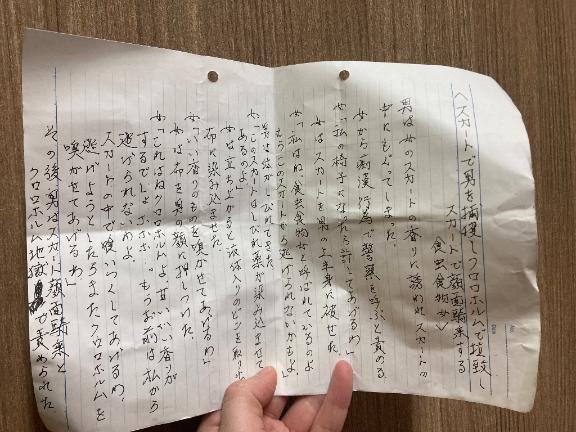 〈スカートで男を捕獲しクロロホルムで拉致し
スカートで顔面騎乗する
食虫食物女〉
男は女のスカートの香りに誘われスカートの
中にもぐってしまった。
女から痴漢行為で警察を呼ぶと責める
女「私の椅子になったら許してあげるわ」
女はスカートを男の上半身に被せた。
女「私はね食虫食物女と呼ばれているのよ
もうこのスカートから逃げられないかもよ」
男は体がしびれてきた。
女「このスカートはしびれ薬が染み込ませて
あるのよ」
女は立ち上がると液体入りのビンを取り
布に染み込ませた。
女「いい香りのものを嗅がせてあげるわ」
女は布を男の顔に押しつけた。
女「これはねクロロホルムよ甘いいい香りが
するでしょ もうお前は私から
逃げられないわよ。
スカートの中で飼いつくしてあげるわ。
逃げようとしたらまたクロロホルムを
嗅がせてあげるわ」
その後男はスカート顔面騎乗と
クロロホルム地獄で責められた